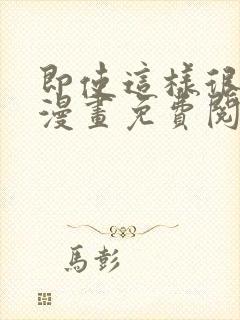 即使這樣很
漫畫免費閱
馬彭